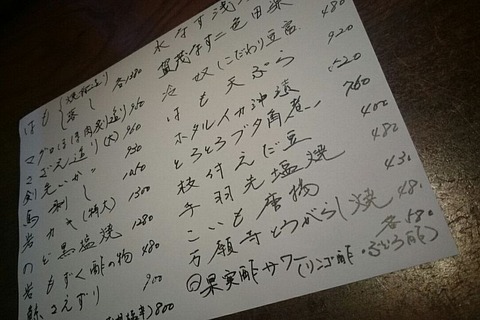 水なす浅
賀茂なす二色田楽 480
冷奴(こだわり豆富)
はも天ぷら 920
ホタルイカ沖漬
とろとろブタ角煮 760
枝付えだ豆 400
手羽先塩焼 480
こいも唐物 430
万願寺とうがらし焼 480
果実酢サワー(リンゴ酢・ぶどう酢) 各580
はも 落し 各1280
マグロほほ肉炙り造り
さざえ造り(大) 960
剣先いか
馬刺し
岩カキ(特大) 1300
のど黒塩焼 1280
岩もずく酢の物 480
鯨さえずり 900
800